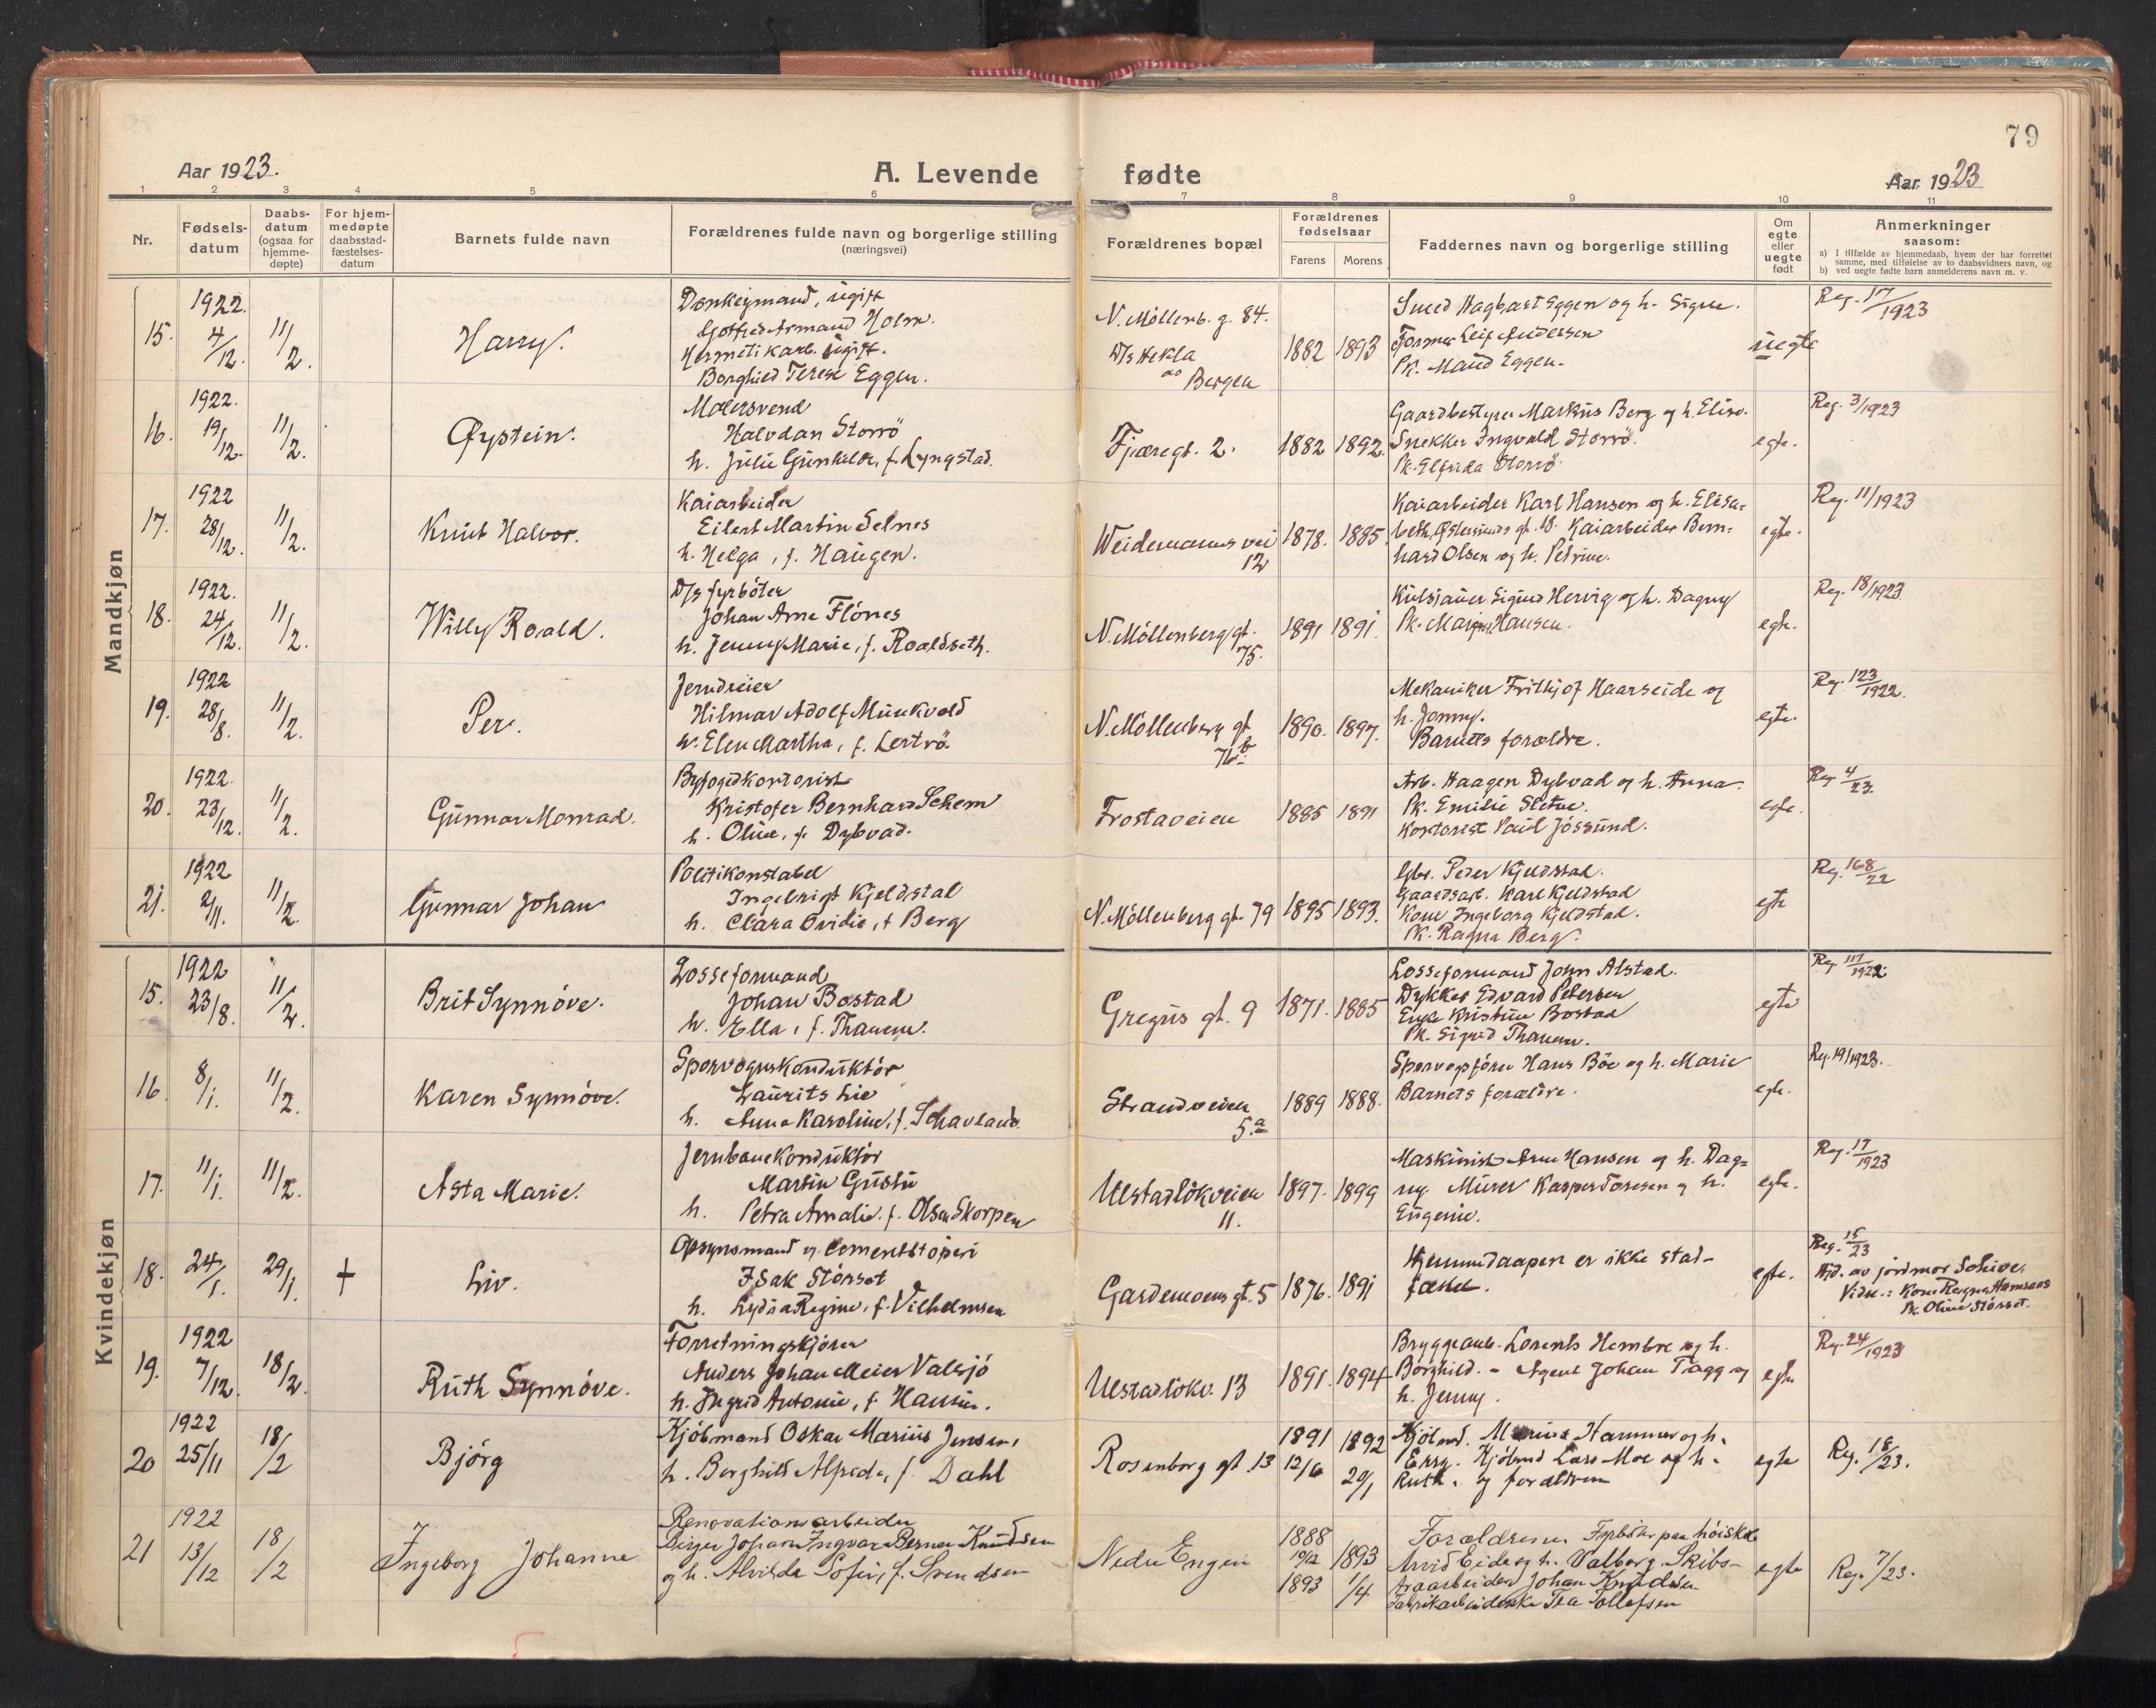 79
Aar 1923.
A. Levende fødte
Aar 1923
1 2 3 4 5 6 7 8 9 10 11
Nr.
Fødsels-
datum
Daabs-
datum
(ogsaa for
hjemme-
døpte)
For hjem-
medøpte
daabsstad-
fæstelses-
datum
Barnets fulde navn
Forældrenes fulde navn og borgerlige stilling
(næringsvei)
Forældrenes bopæl
Forældrenes
fødselsaar
Farens
Morens
Faddernes navn og borgerlige stilling
Om
egte
eller
uegte
født
Anmerkninger
saasom:
a) I tilfælde av hjemmedaab, hvem der har forrettet
samme, med tilføielse av to daabsvidners navn, og
b) ved uegte fødte barn anmelderens navn m. v.
Mandkjøn
15.
1922.
4/12.
11/2.
Harry.
Donkeymand, ugift
Gotfred Armand Holm.
Hermetikarb. ugift.
Borghild Terese Eggen.
N. Møllenb. g. 84.
D/s Hekla
Bergen
1882
1893
Smed Hagbart Eggen og h. Signe.
Former Leif Andersen
Pk. Maud Eggen.
uegte
Reg. 17/1923
16.
1922.
19/12.
11/2.
Øystein.
Malersvend
Halvdan Storrö
h. Julie Gunhilde, f. Lyngstad.
Fjæregt. 2.
1882
1892.
Gaardbestyrer Markus Berg og h. Elise.
Snekker Ingvald Storrö.
Pk. Elfrida Storrö.
egte.
Reg. 3/1923
17.
1922
28/12.
11/2.
Knut Halvor.
Kaiarbeider
Eilert Martin Selnes
h. Helga, f. Haugen.
Weidemanns vei
12
1878.
1885
Kaiarbeider Karl Hansen og h. Elisa-
beth, Østersunds gt. Kaiarbeider Bern-
hard Olsen og h. Petrine.
egte.
Reg. 11/1923
18.
1922.
24/12.
11/2.
Willy Roald.
D/s fyrböter
Johan Arne Flönes
h. Jenny Marie, f. Roaldseth.
N. Møllenberg gt.
75.
1891
1891.
Kulsjauer Sigurd Hervig og h. Dagny
Pk. Margit Hansen.
egte.
Reg. 18/1923
19.
1922
28/8.
11/2.
Per.
Jerndreier
Hilmar Adolf Munkvold
h. Elen Martha, f. Lertrö.
N. Møllenberg gt
76b.
1890.
1897.
Mekaniker Frithjof Haarseide og
h. Jenny.
Barnets forældre.
egte.
Reg. 123/1922.
20.
1922.
23/12.
11/2.
Gunnar Monrad.
Byfogedkontorist
Kristofer Bernhard Schem
h. Oline, f. Dybvad.
Frostaveien
1885
1891
Arb. Haagen Dybvad og h. Anna.
Pk. Emilie Sletne.
Kontorist Paul Jössund.
egte.
Reg 4/23.
21.
1922
2/11.
11/2.
Gunnar Johan
Politikonstabel
Ingebrigt Kjeldstad
h. Clara Ovidie, f Berg
N. Møllenberg gt. 79
1895
1893.
Gbr. Peder Kjeldstad.
Gaardsarb. Karl Kjeldstad
Kone Ingeborg Kjeldstad.
Pk. Ragna Berg.
egte
Reg. 168/22
Kvindekjøn
15.
1922
23/8.
11/2.
Brit Synnöve.
Losseformand
Johan Bostad
h. Ella, f. Thanem.
Gregus gt. 9
1871.
1885
Losseformand John Alstad.
Dykker Edvard Petersen
Enke Kristine Bostad
Pk. Sigrid Thanem.
egte
Reg. 117/1922.
16.
8/1.
11/2.
Karen Synnöve.
Sporvognskonduktör
Laurits Lie
h. Anna Karoline, f. Schavland.
Strandveien
5.a
1889
1888.
Sporvognförer Hans Böe og h. Marie
Barnets forældre.
egte.
Reg. 19/1923.
17.
11/1.
11/2.
Asta Marie.
Jernbanekonduktör
Martin Gustu
h. Petra Amalie f. Olsen Skorpen
Ulstadlökveien
11.
1897.
1899
Maskinist Arne Hansen og h. Dag-
ny. Murer Kasper Toresen og h.
Eugenie.
egte.
Reg. 17/1923
18.
24/1.
29/1.
+
Liv.
Opsynsmand v. Cementstöperi
Isak Störset
h. Lydia Regine, f. Vilhelmsen
Gardemoens gt. 5
1876.
1891
Hjemmedaapen er ikke stad-
fæstet.
egte.
Reg. 15/23
Hjd. av jordmor Schive.
Vidn.: Kone Regna Hamsaas
Pk. Oline Störset.
19.
1922
7/12.
18/2.
Ruth Synnöve.
Forretningskjörer
Anders Johan Meier Valsjö
h. Ingrid Antonie, f. Hansen.
Ulstadlökv. 13
1891.
1894
Bryggearb. Lorents Hembre og h.
Borghild. - Agent Johan Tagg og
h. Jenny.
egte
Reg. 24/1923
20
1922
25/11
18/2
Bjørg
Kjöbmand Oskar Marius Jensen,
h. Borghild Alfreda, f. Dahl
Rosenborg gt. 13
1891
12/6
1892
20/1
Kjöbmd. Marius Hammer og h.
Kjöbmd Lars Moe og h.
Ruth. og forældrene
egte
Reg. 18/23.
21
1922
13/12
18/2
Ingeborg Johanne
Renovationsarbeider
Birger Johan Ingvar Berner Knudsen
og h. Alvilde Sofie, f. Svendsen
Nedre Engen
1888
19/12
1893
1893
1/4
Forældrene Fyrböter paa höiskole
Arvid Eide og h. Valborg. Skibs-
Johan Knudsen
Fabrikarbeiderske Tea Tollefsen
egte
Reg. 7/23.